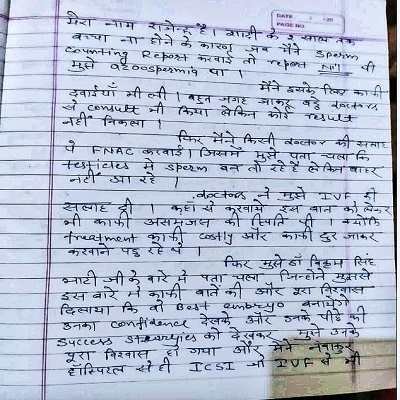 DATE
PAGE NO.
मेरा नाम राजेन्द्र है। शादी के 2 साल तक
बच्चा ना होने के कारण जब मैंने Sperm
Counting Report करवाई तो report Nil थी
मुझे azoospermia था।
मैंने इसके लिए काफी
दवाईयाँ भी ली। बहुत जगह जाकर बड़े doctors
से consult भी किया लेकिन कोई result
नहीं निकला।
फिर मैंने किसी doctor की सलाह
से FNAC करवाई। जिसमें मुझे पता चला कि
testicles में sperm बन तो रहे हैं लेकिन बाहर
नहीं आ रहे।
doctors ने मुझे IVF की
सलाह दी। कहाँ से करवायें इस बात को लेकर
भी काफी असमंजस की स्थिति थी। क्योंकि
treatment काफी costly और काफी दूर जाकर
करवाने पड़ रहे थे।
फिर मुझे डॉ विक्रम सिंह
भाटी जी के बारे में पता चला जिन्होंने मुझसे
इस बारे में काफी बातें की और पूरा विश्वास
दिलाया कि वो Best embryo बनायेंगे
उनका confidence देखके और उनके पीछे की
success कों देखकर मुझे उनके
पूरा विश्वास हो गया और मैंने नवांकुर
हॉस्पिटल से ही ICSI IVF से भी